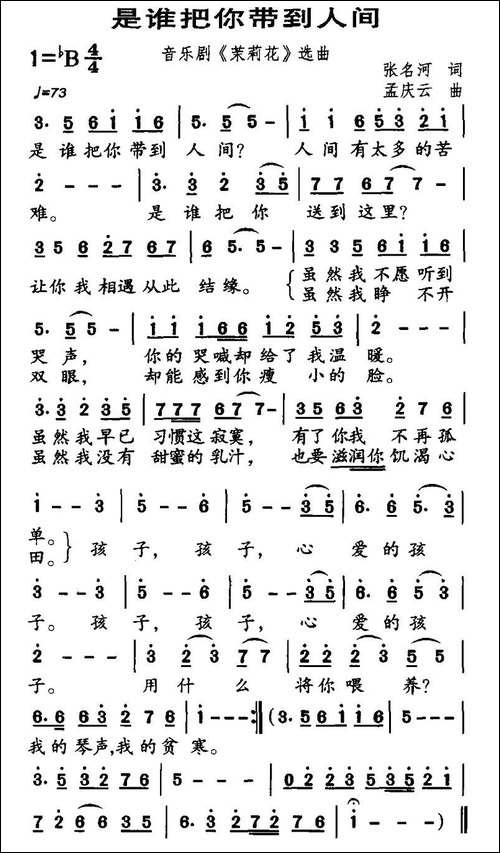 是谁把你带到人间
1=♭B 4/4 音乐剧《茉莉花》选曲
♩=73
张名河 词
孟庆云 曲
3. 5 6 1 1 6 | 5. 5 5 - | 1 1 6 5 3 2 1
是谁把你带到 人间？ 人间有太多的苦
2 - - - | 3. 3 2 3 5 | 7 7 6 7 7 -
难。 是谁把你 送到这里？
3 3 5 6 2 7 6 7 | 6 5. 5 - | 3 3 5 6 1 1 6
让你我相遇从此 结缘。 虽然我不愿听到
虽然我睁 不开
5. 5 5 - | 1 1 1 6 6 1 2 5 3 | 2 - - -
哭声， 你的哭喊却给了我温 暖。
双眼， 却能感到你瘦 小的 脸。
3. 3 2 3 5 | 7 7 7 6 7 7 - | 3 5 6 3 2 7 6
虽然我早已 习惯这寂寞， 有了你我 不再孤
虽然我没有 甜蜜的乳汁， 也要滋润你饥渴心
1 - - 3 | 5 - - 6 | 5 - - 3 5 | 6. 6 6 5
单。 孩 子， 孩 子， 心 爱的孩
田。
3 - - 3 | 5 - - 6 | 5 - - 3 5 | 6. 6 6 3
子。 孩 子， 孩 子， 心 爱的孩
2 - - - | 3 2 3 7 7 | 2 2 2 3 5 5
子。 用什 么 将你喂 养？
6. 6 6 3 2 7 6 | 1 - - - :‖ (3. 5 6 1 1 6 | 5 - - -
我的琴声，我的贫 寒。
3. 5 3 2 7 6 | 5 - - - | 0 2 2 3 5 3 5 2 1
7 2 6 6 5 | 6. 6 6 2 7 2 7 6 | 1 - - - ) ‖